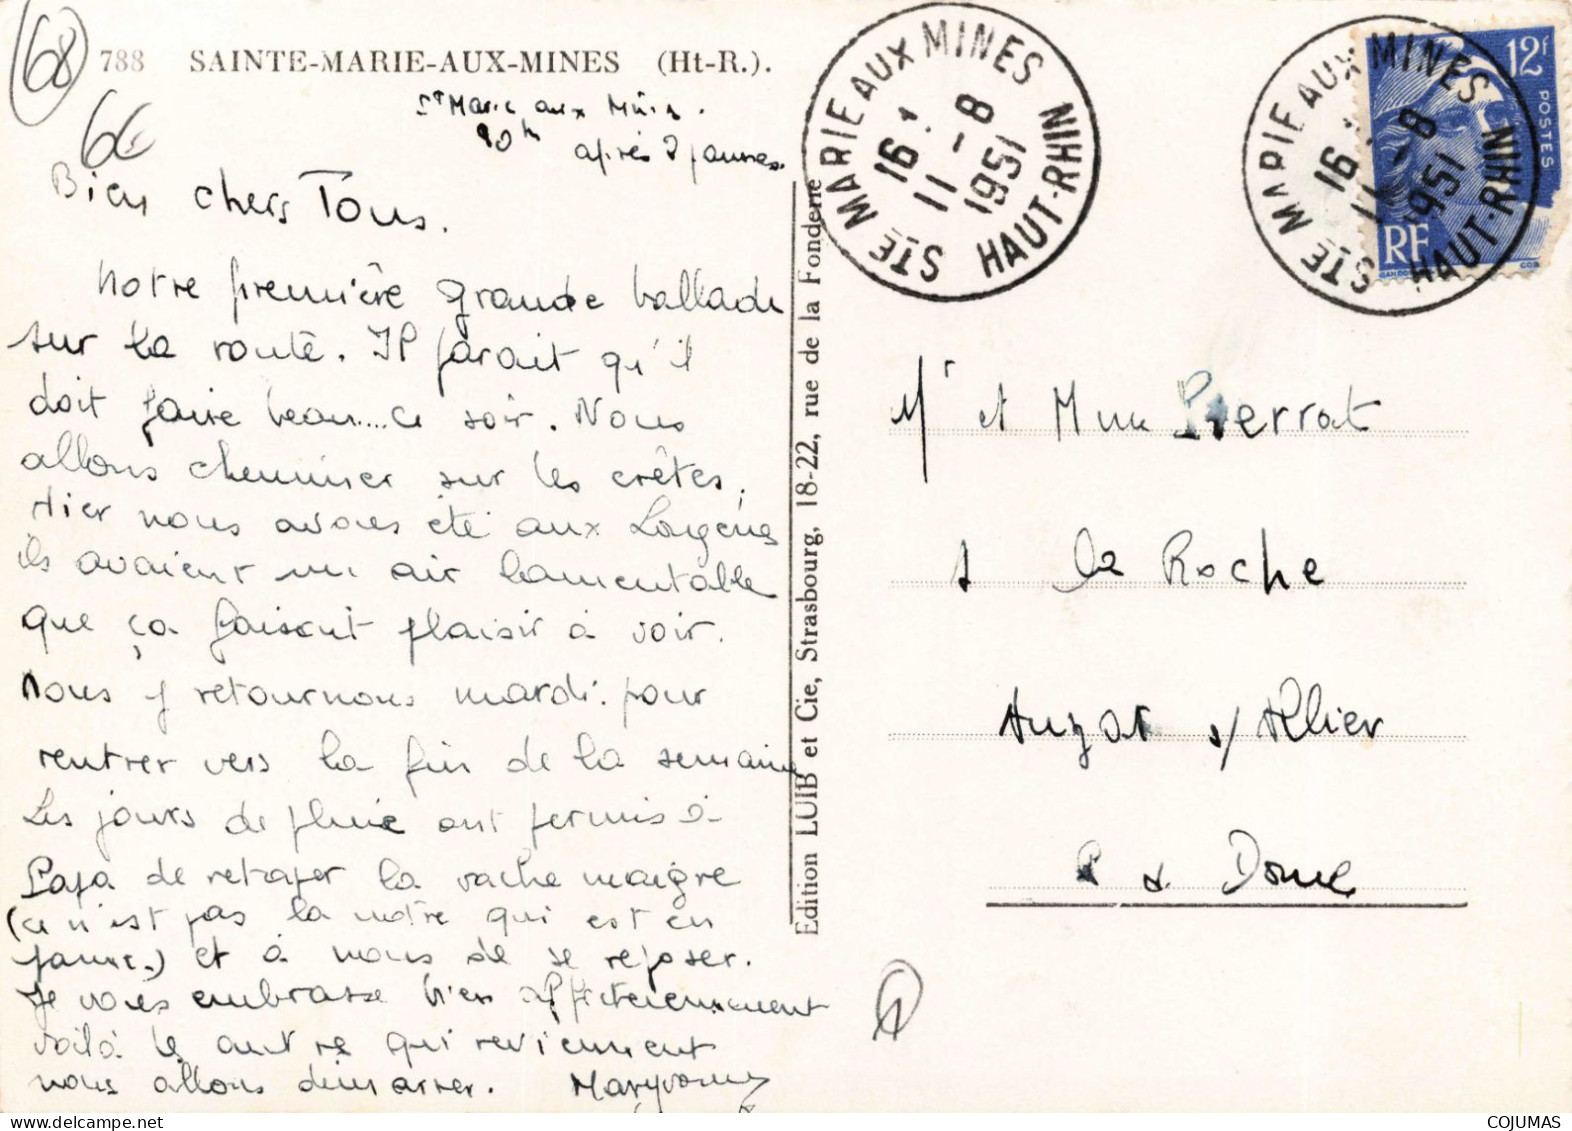 68
788 SAINTE-MARIE-AUX-MINES (Ht-R.).
66
St Marie aux Mines.
10h après 2 pannes.
Bien chers Tous.
Notre première grande ballade
sur la route. Il parait qu'il
doit faire beau....ce soir. Nous
allons cheminer sur les crêtes.
Hier nous avons été aux
ils avaient un air lamentable
que ça faisait plaisir à voir.
Nous y retournons mardi. pour
rentrer vers la fin de la semaine
Les jours de pluie ont permis à
Papa de retaper la vache maigre
(ce n'est pas la notre qui est en
panne.) et à nous de se reposer.
Je vous embrasse bien affectueusement
voilà le autre qui reviennent
nous allons démarrer. Maryvonne
Edition LUIB et Cie, Strasbourg, 18-22, rue de la Fonderie
STE MARIE AUX MINES HAUT-RHIN
16
11 -8
1951
STE MARIE AUX MINES HAUT-RHIN
16
11 -8
1951
12f
POSTES
RF
GANDON
Mr et Mme Pierrat
à la Roche
Auzat s/ Allier
P de Dome
COJUMAS